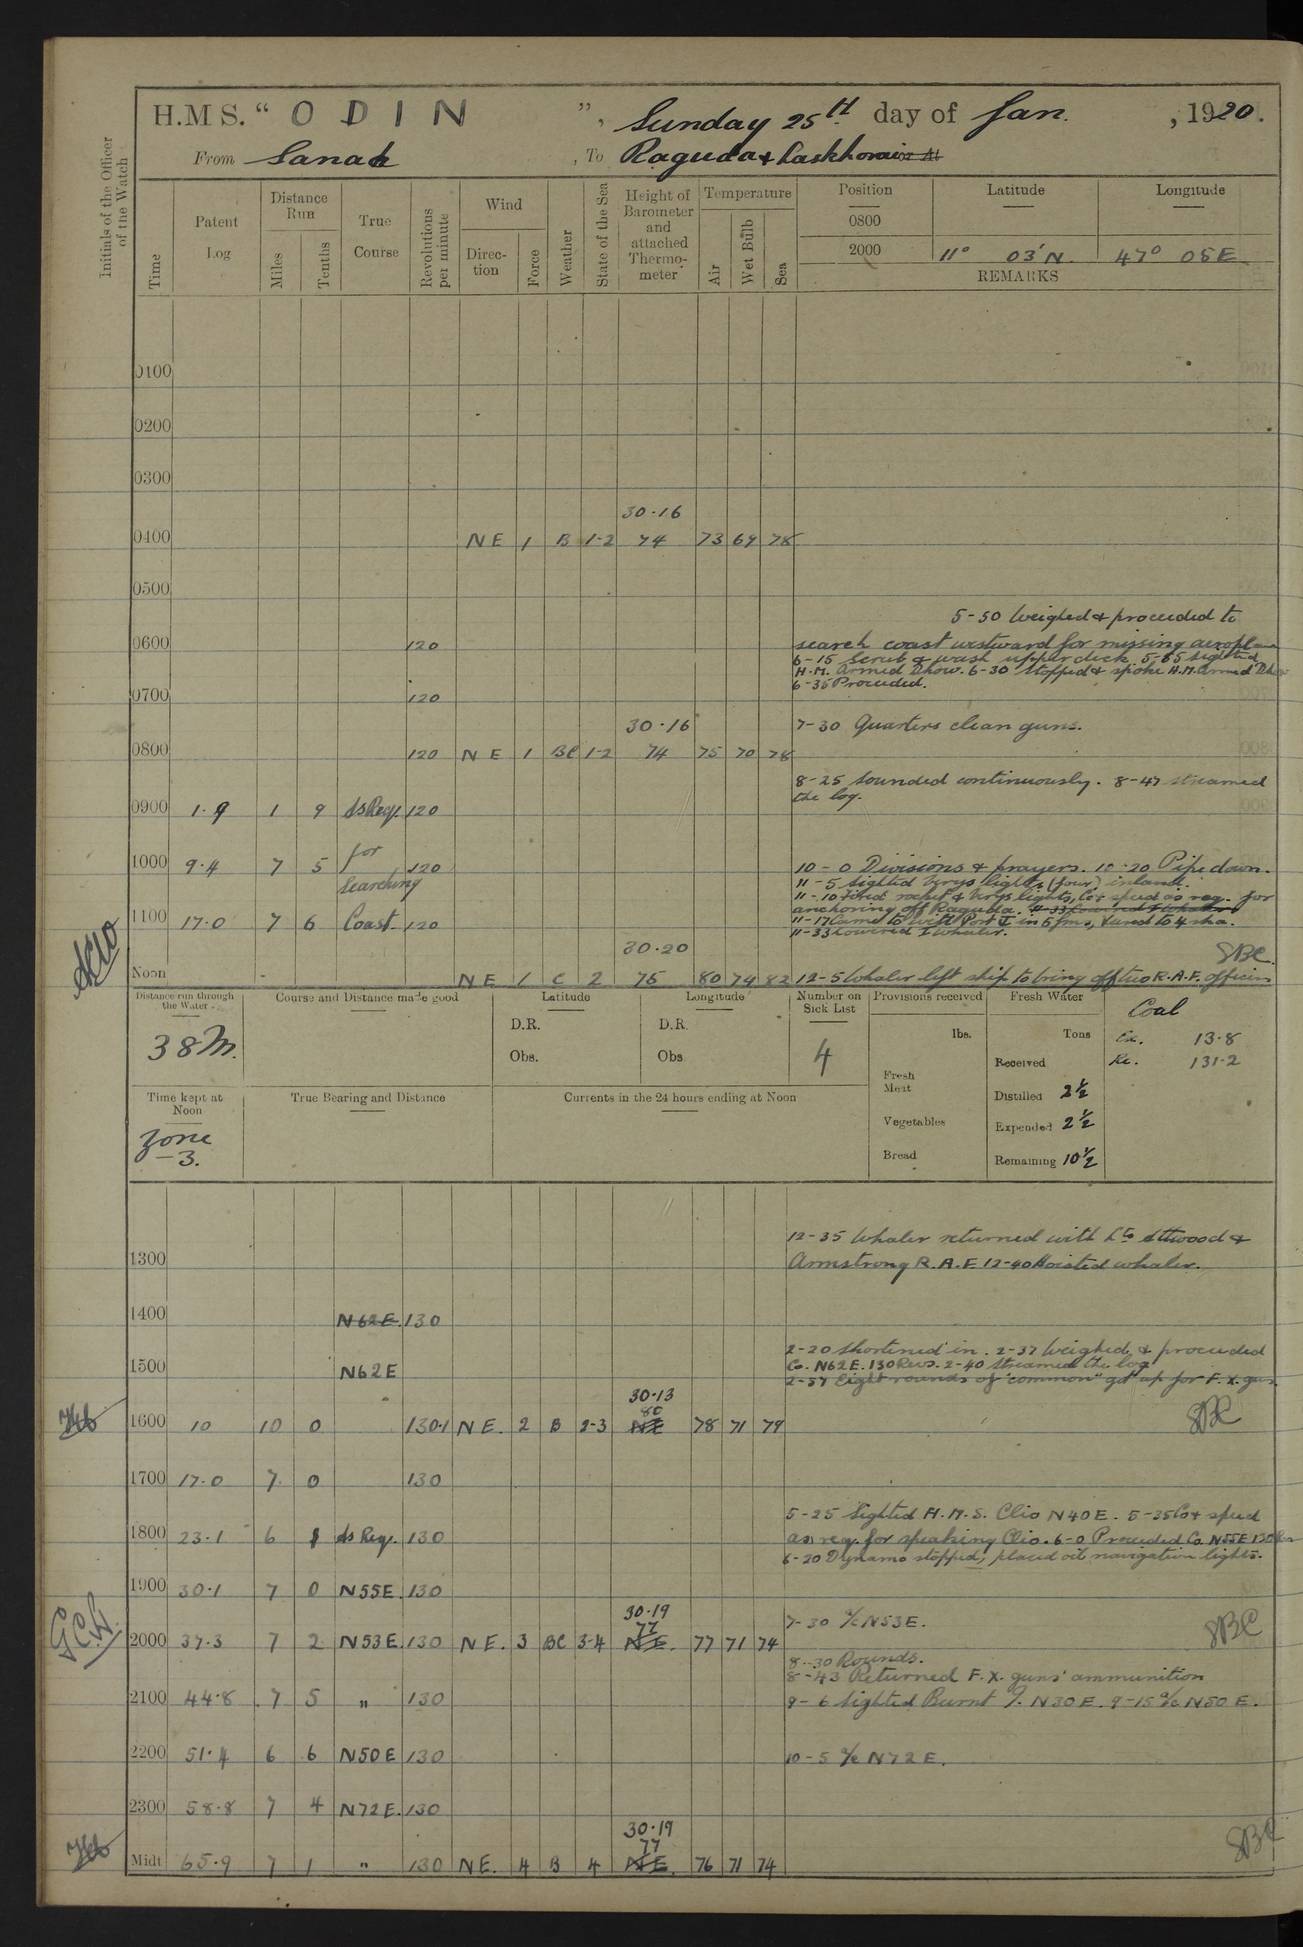 H.M S. “ ODIN ”, Sunday 25th day of Jan. , 1920.
From Sanak , To Raguda &
Initials of the Officer of the Watch
Time
Patent Log
Distance Run
Miles
Tenths
True Course
Revolutions per minute
Wind
Direc-tion
Force
Weather
State of the Sea
Height of Barometer and attached Thermo-meter
Temperature
Air
Wet Bulb
Sea
Position Latitude Longitude
0800
2000 11° 03'N. 47° 08E
REMARKS
0100
0200
0300
30·16
0400 NE 1 B 1-2 74 73 69 78
0500
5-50 Weighed & proceeded to
0600 120 search coast westward for missing aeroplane
6-15 Scrub & wash upper deck. 5-55 Sighted
H.M. Armed Dhow. 6-30 Stopped & spoke H.M. Armed Dhow
6-35 Proceeded.
0700 120
30·16
7-30 Quarters clean guns.
0800 120 NE 1 BC 1-2 74 75 70 78
8-25 Sounded continuously. 8-47 streamed
the log.
0900 1·9 1 9 As Req. 120
1000 9·4 7 5 for 120 10-0 Divisions & prayers. 10-20 Pipe down.
Searching
11-5 Sighted Verys lights (four) inland.
11-10 Fired rocket & Verys lights, Co & speed as req. for
anchoring off Raguda. 11-33 Lowered I Whaler
1100 17·0 7 6 Coast 120 11-17 Came to with Port in 5 fms, veered to 4 sha.
11-33 Lowered I whaler.
30·20
SBC
Noon NE 1 C 2 75 80 74 82 12-5 Whaler left ship to bring off two R.A.F. officers
Distance run through the Water
38 M.
Course and Distance made good
Latitude
D.R.
Obs.
Longitude
D.R.
Obs
Number on Sick List
4
Provisions received
lbs.
Fresh Meat
Vegetables
Bread
Fresh Water
Tons
Received
Distilled 2½
Expended 2½
Remaining 10½
Coal
Ex. 13·8
Re. 131·2
Time kept at Noon
Zone
-3.
True Bearing and Distance
Currents in the 24 hours ending at Noon
12-35 Whaler returned with Lts Attwood &
1300 Armstrong R.A.F. 12-40 Hoisted whaler.
1400 N62E. 130
2-20 Shortened in. 2-37 Weighed & proceeded
1500 N62E Co. N62E. 130 Revs. 2-40 Streamed the log
2-57 Eight rounds of "common" got up for F.X. gun.
30·13
80
1600 10 10 0 130·1 NE. 2 B 2-3 NE 78 71 79
SBC
1700 17·0 7 0 130
5-25 Sighted H.M.S. Clio N40E. 5-35 Co & speed
1800 23·1 6 1 As Req. 130 as req. for speaking Clio. 6-0 Proceeded Co. N55E 130 Rev
6-20 Dynamo stopped, placed oil navigation lights.
1900 30·1 7 0 N55E. 130
30·19
77
7-30 a/c N53E.
SBC
2000 37·3 7 2 N53E. 130 NE. 3 BC 3-4 NE. 77 71 74
8-30 Rounds.
8-43 Returned F.X. guns' ammunition
2100 44·8 7 5 " 130 9-6 Sighted Burnt I. N30E. 9-15 a/c N50E.
2200 51·4 6 6 N50E 130 10-5 a/c N72E.
2300 58·8 7 4 N72E. 130
30·19
77
SBC
Midt 65·9 7 1 " 130 NE. 4 B 4 NE. 76 71 74